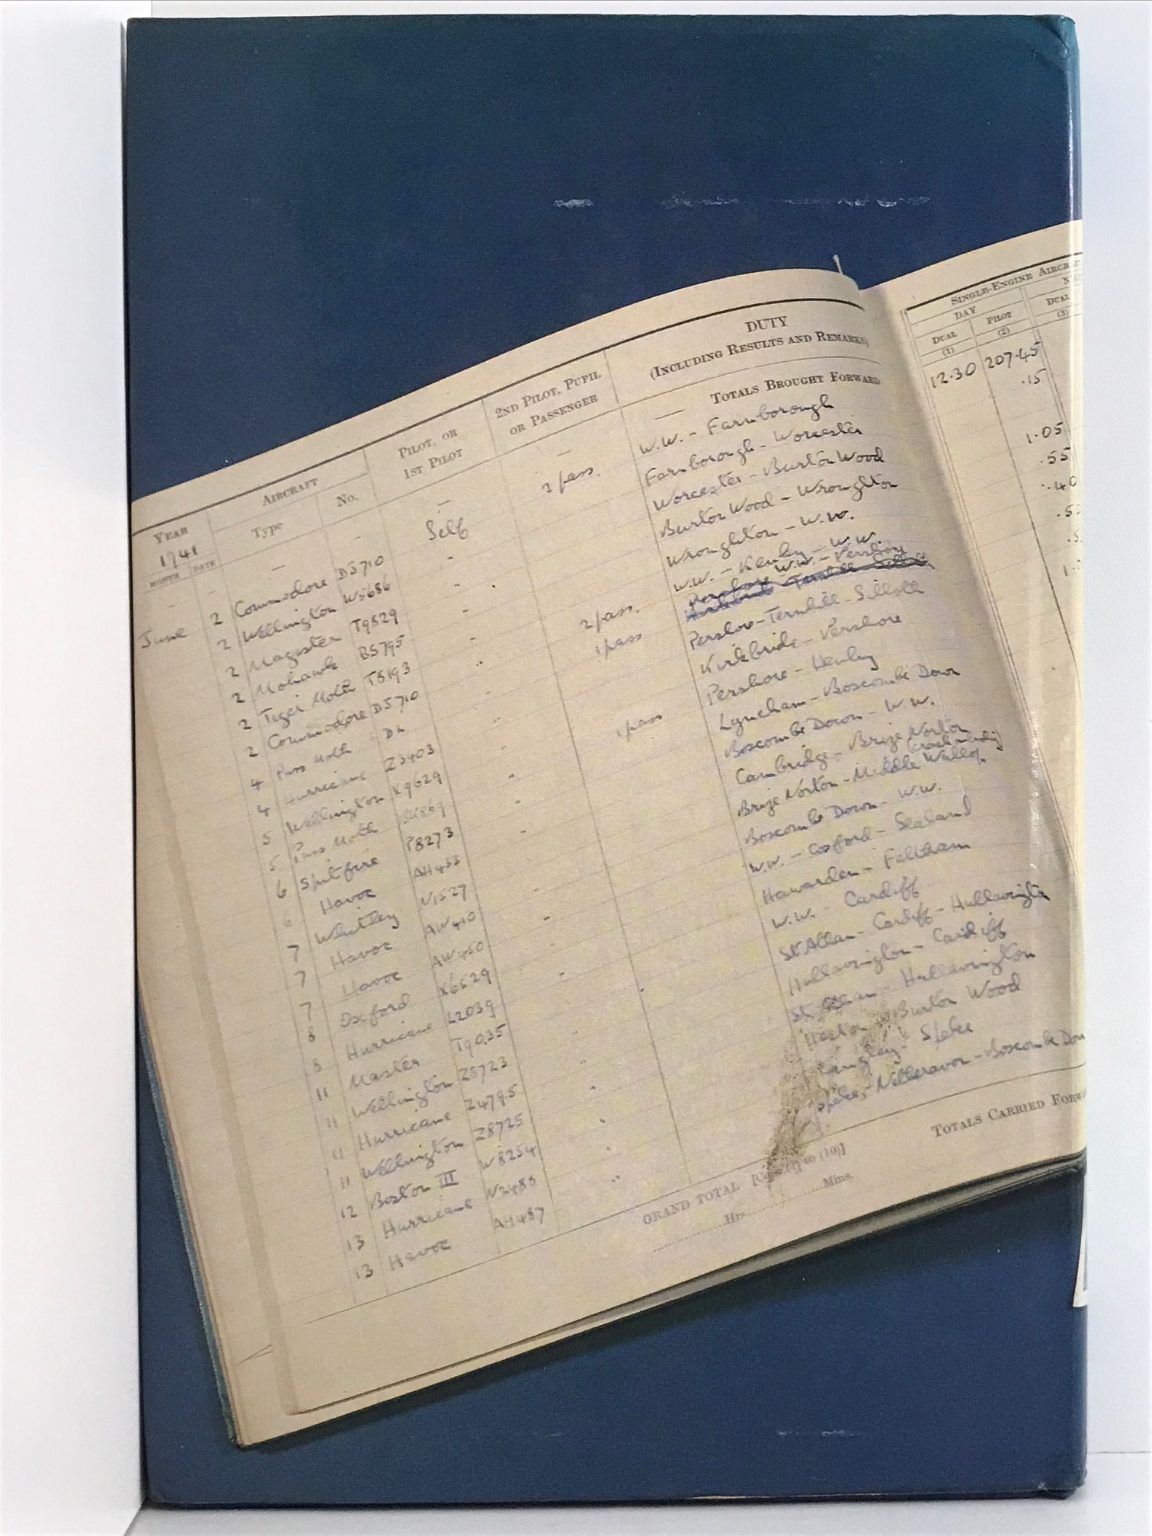 YEAR AIRCRAFT PILOT, OR 2ND PILOT, PUPIL DUTY
1941 Type No. 1ST PILOT OR PASSENGER (INCLUDING RESULTS AND REMARKS)
MONTH DATE
SINGLE-ENGINE AIRCRAFT
DAY
DUAL PILOT DUAL
(1) (2) (3)
— — — — — — TOTALS BROUGHT FORWARD 12.30 207.45
June 2 Commodore DS710 Self 2 pass. W.W. - Farnborough .15
2 Wellington W5686 " Farnborough - Worcester
2 Magister T9829 " Worcester - Burton Wood 1.05
2 Mohawk BS795 " Burton Wood - Wroughton .55
2 Tiger Moth T5193 " 2 pass. Wroughton - W.W. .40
2 Commodore DS710 " 1 pass W.W. - Kenley - W.W.
4 Puss Moth W.W. - Pershore
4 Hurricane Z3403 Pershore - Ternhill - Silloth
5 Wellington X9629 1 pass Kirkbride - Pershore
5 Puss Moth Pershore - Henley
6 Spitfire P8273 Lyneham - Boscombe Down
6 Havoc AH453 Boscombe Down - W.W.
7 Whitley N1527 Cambridge - Brize Norton
7 Havoc AW410 Brize Norton - Middle Wallop
7 Havoc AW410 Boscombe Down - W.W.
8 Oxford X6529 W.W. - Cosford - Sealand
8 Hurricane L2039 Hawarden - Feltham
11 Master T9035 W.W. - Cardiff
11 Wellington Z8723 St Athan - Cardiff - Hullavington
11 Hurricane Z4795 Hullavington - Cardiff
11 Wellington Z8725 St Athan - Hullavington
12 Boston III W8254 Heston - Burton Wood
13 Hurricane N2488 Langley - Speke
13 Havoc AH487 Speke - Netheravon - Boscombe Down
GRAND TOTAL (10)]
Hrs. Mins.
TOTALS CARRIED